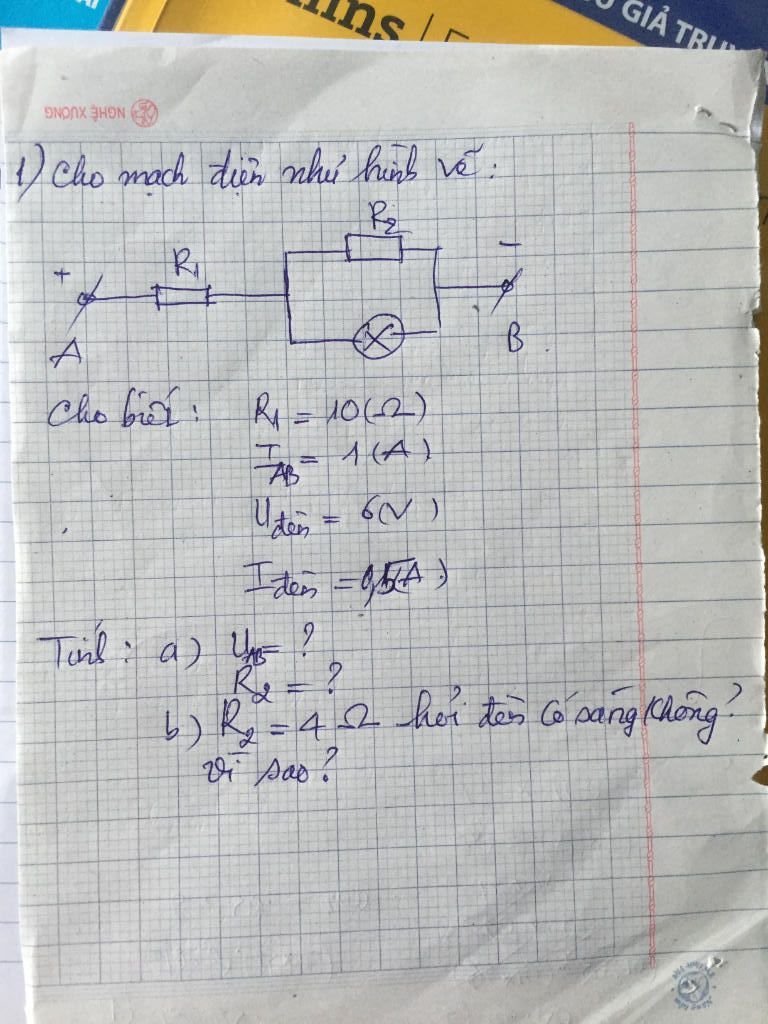 ins
GIẢ TRU
NGHỆ XƯƠNG
1) Cho mạch điện như hình vẽ:
R2
R1
+
-
A
B
Cho biết: R1 = 10(Ω)
IAB = 1(A)
Uđèn = 6(V)
Iđèn = 0,5(A)
Tính: a) UAB = ?
R2 = ?
b) R2 = 4 Ω hỏi đèn có sáng không?
vì sao?